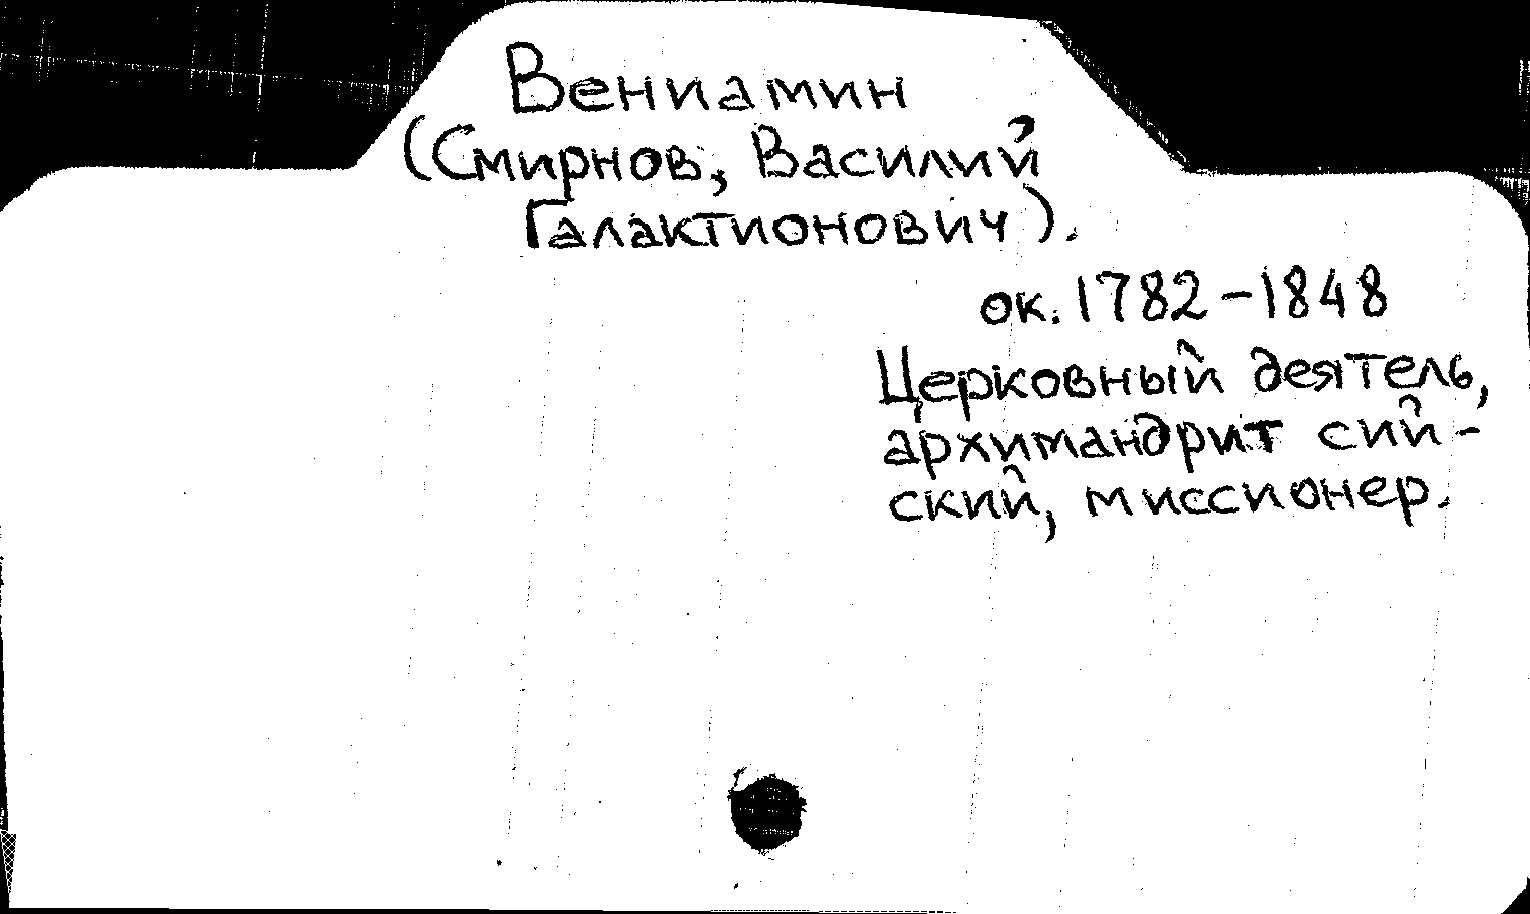 Вениамин
(Смирнов, Василий
Галактионович).
ок. 1782-1848
Церковный деятель,
архимандрит сий-
ский, миссионер.